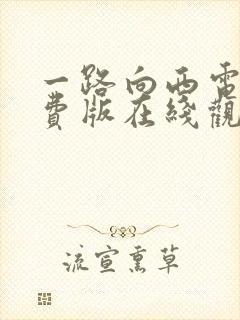 一路向西電
費版在綫觀
流宣熏草